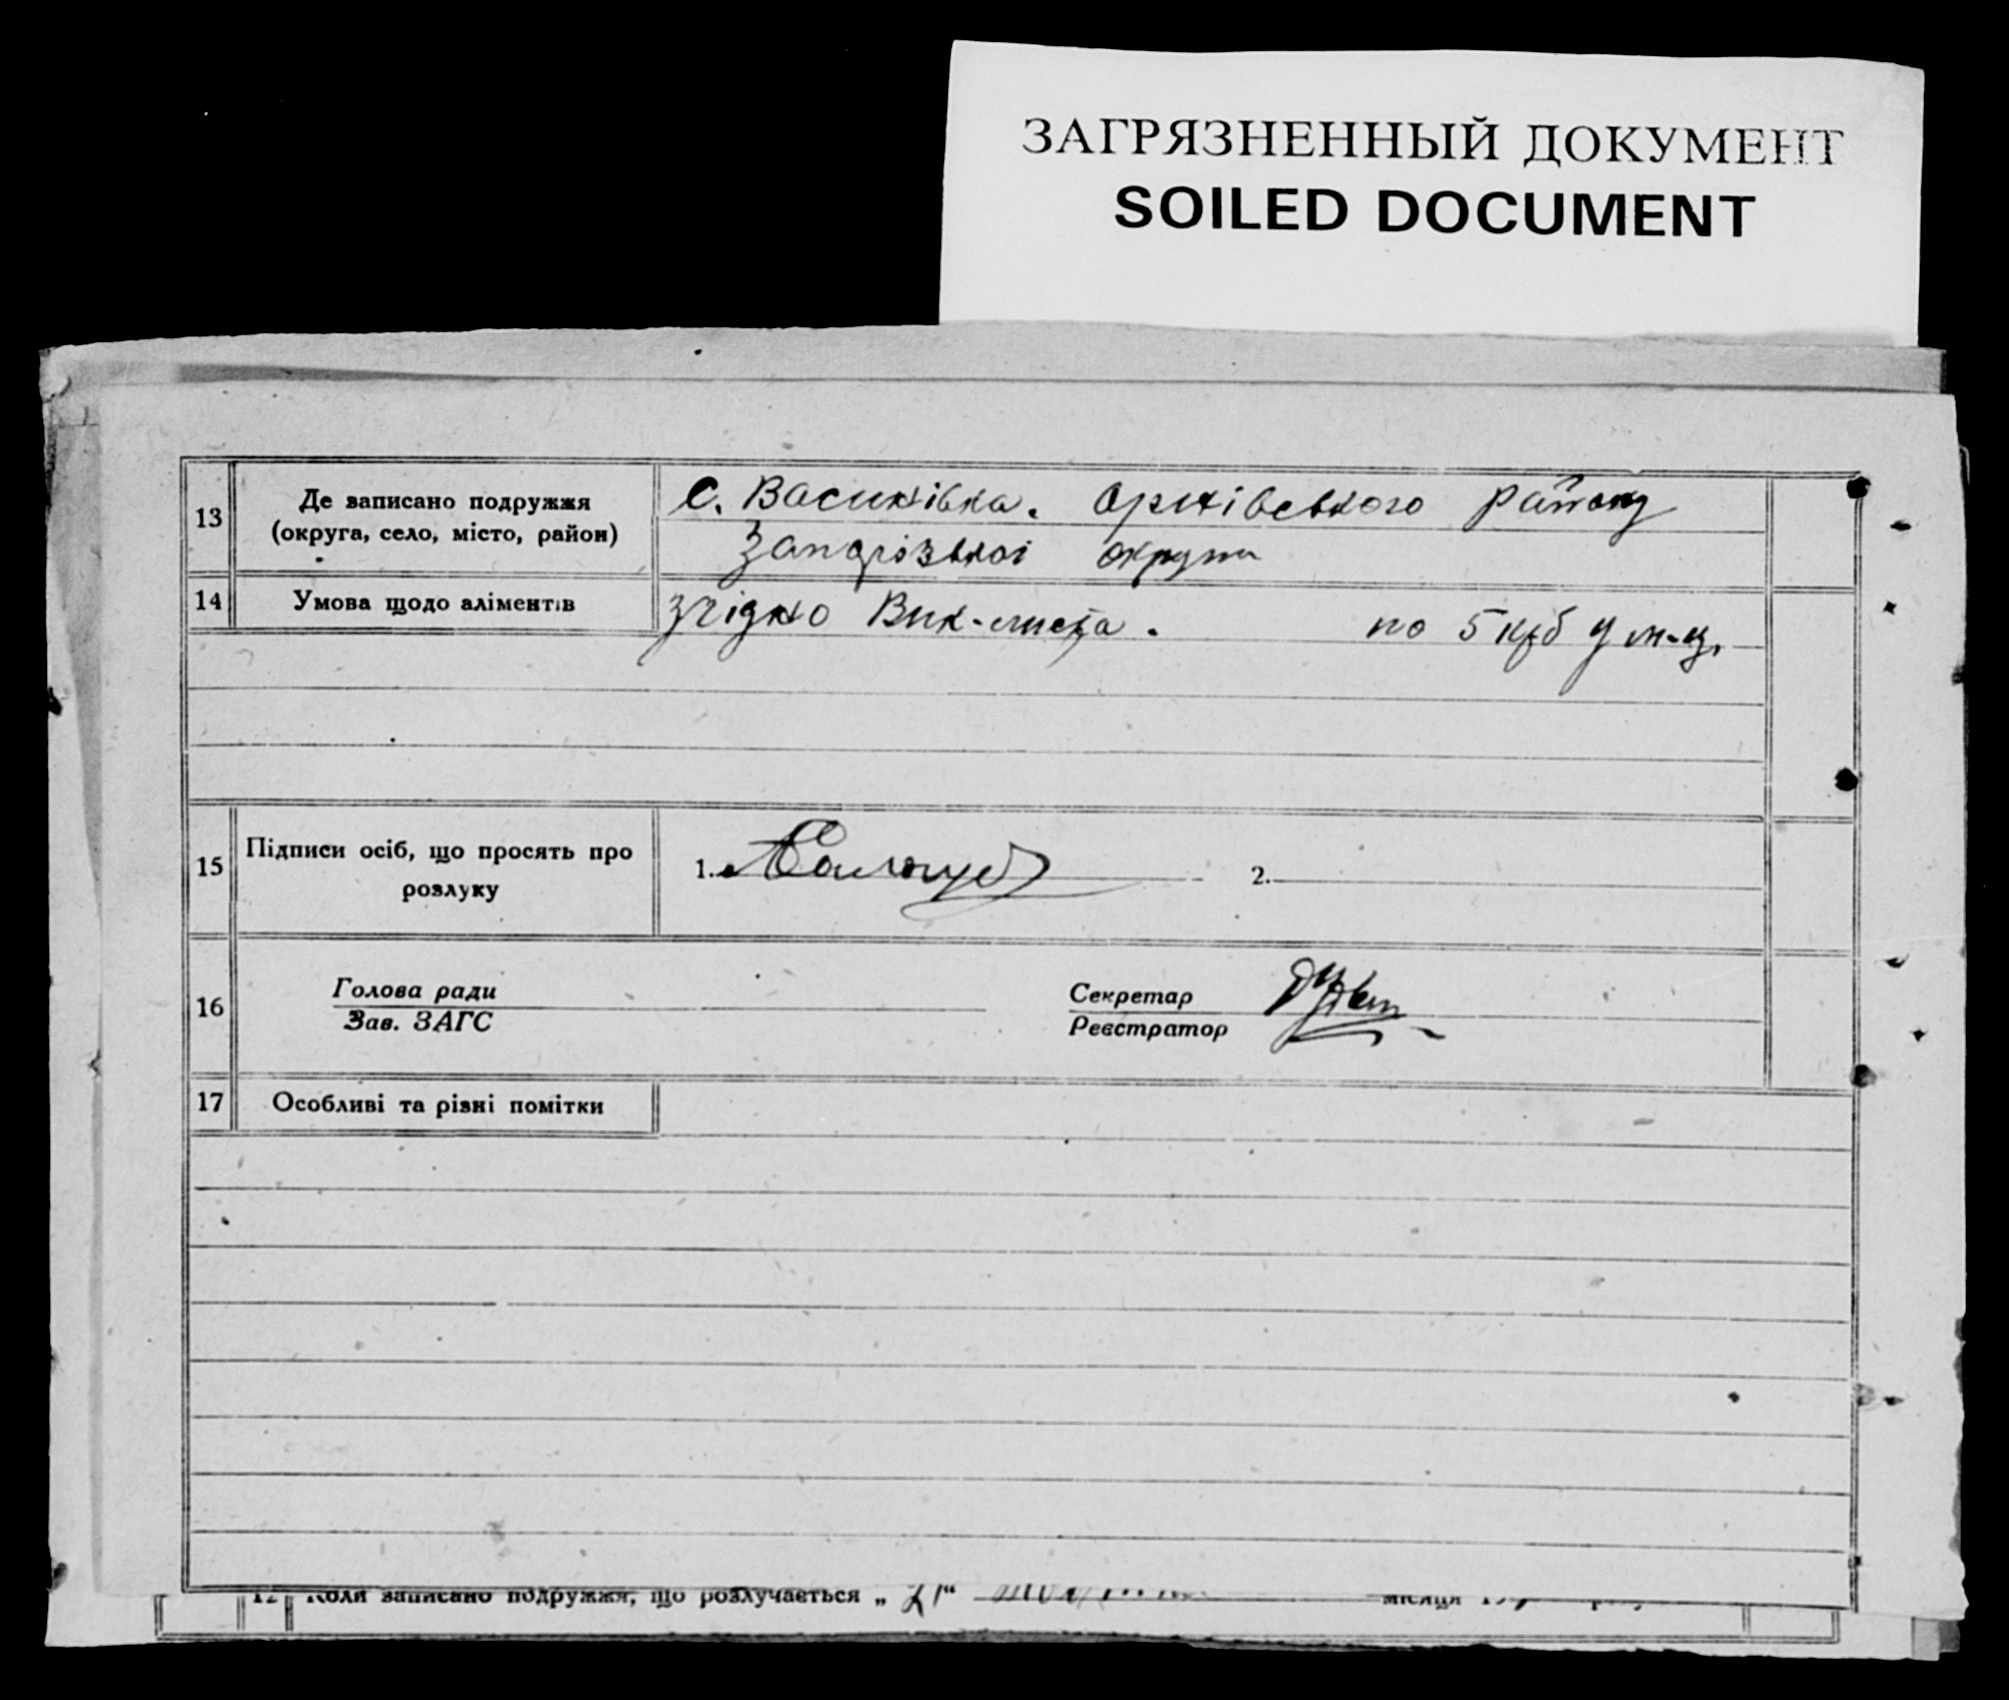 ЗАГРЯЗНЕННЫЙ ДОКУМЕНТ
SOILED DOCUMENT
13 Де записано подружжя (округа, село, місто, район)
с. Васинівка. Оріхівського району
Запорізької округи
14 Умова щодо аліментів
згідно Вик-листа. по 5 крб у м-ц.
15 Підписи осіб, що просять про розлуку
1. 2.
16 Голова ради
Зав. ЗАГС
Секретар
Реєстратор
17 Особливі та різні помітки
12 Коли записано подружжя, що розлучається „21“ місяця